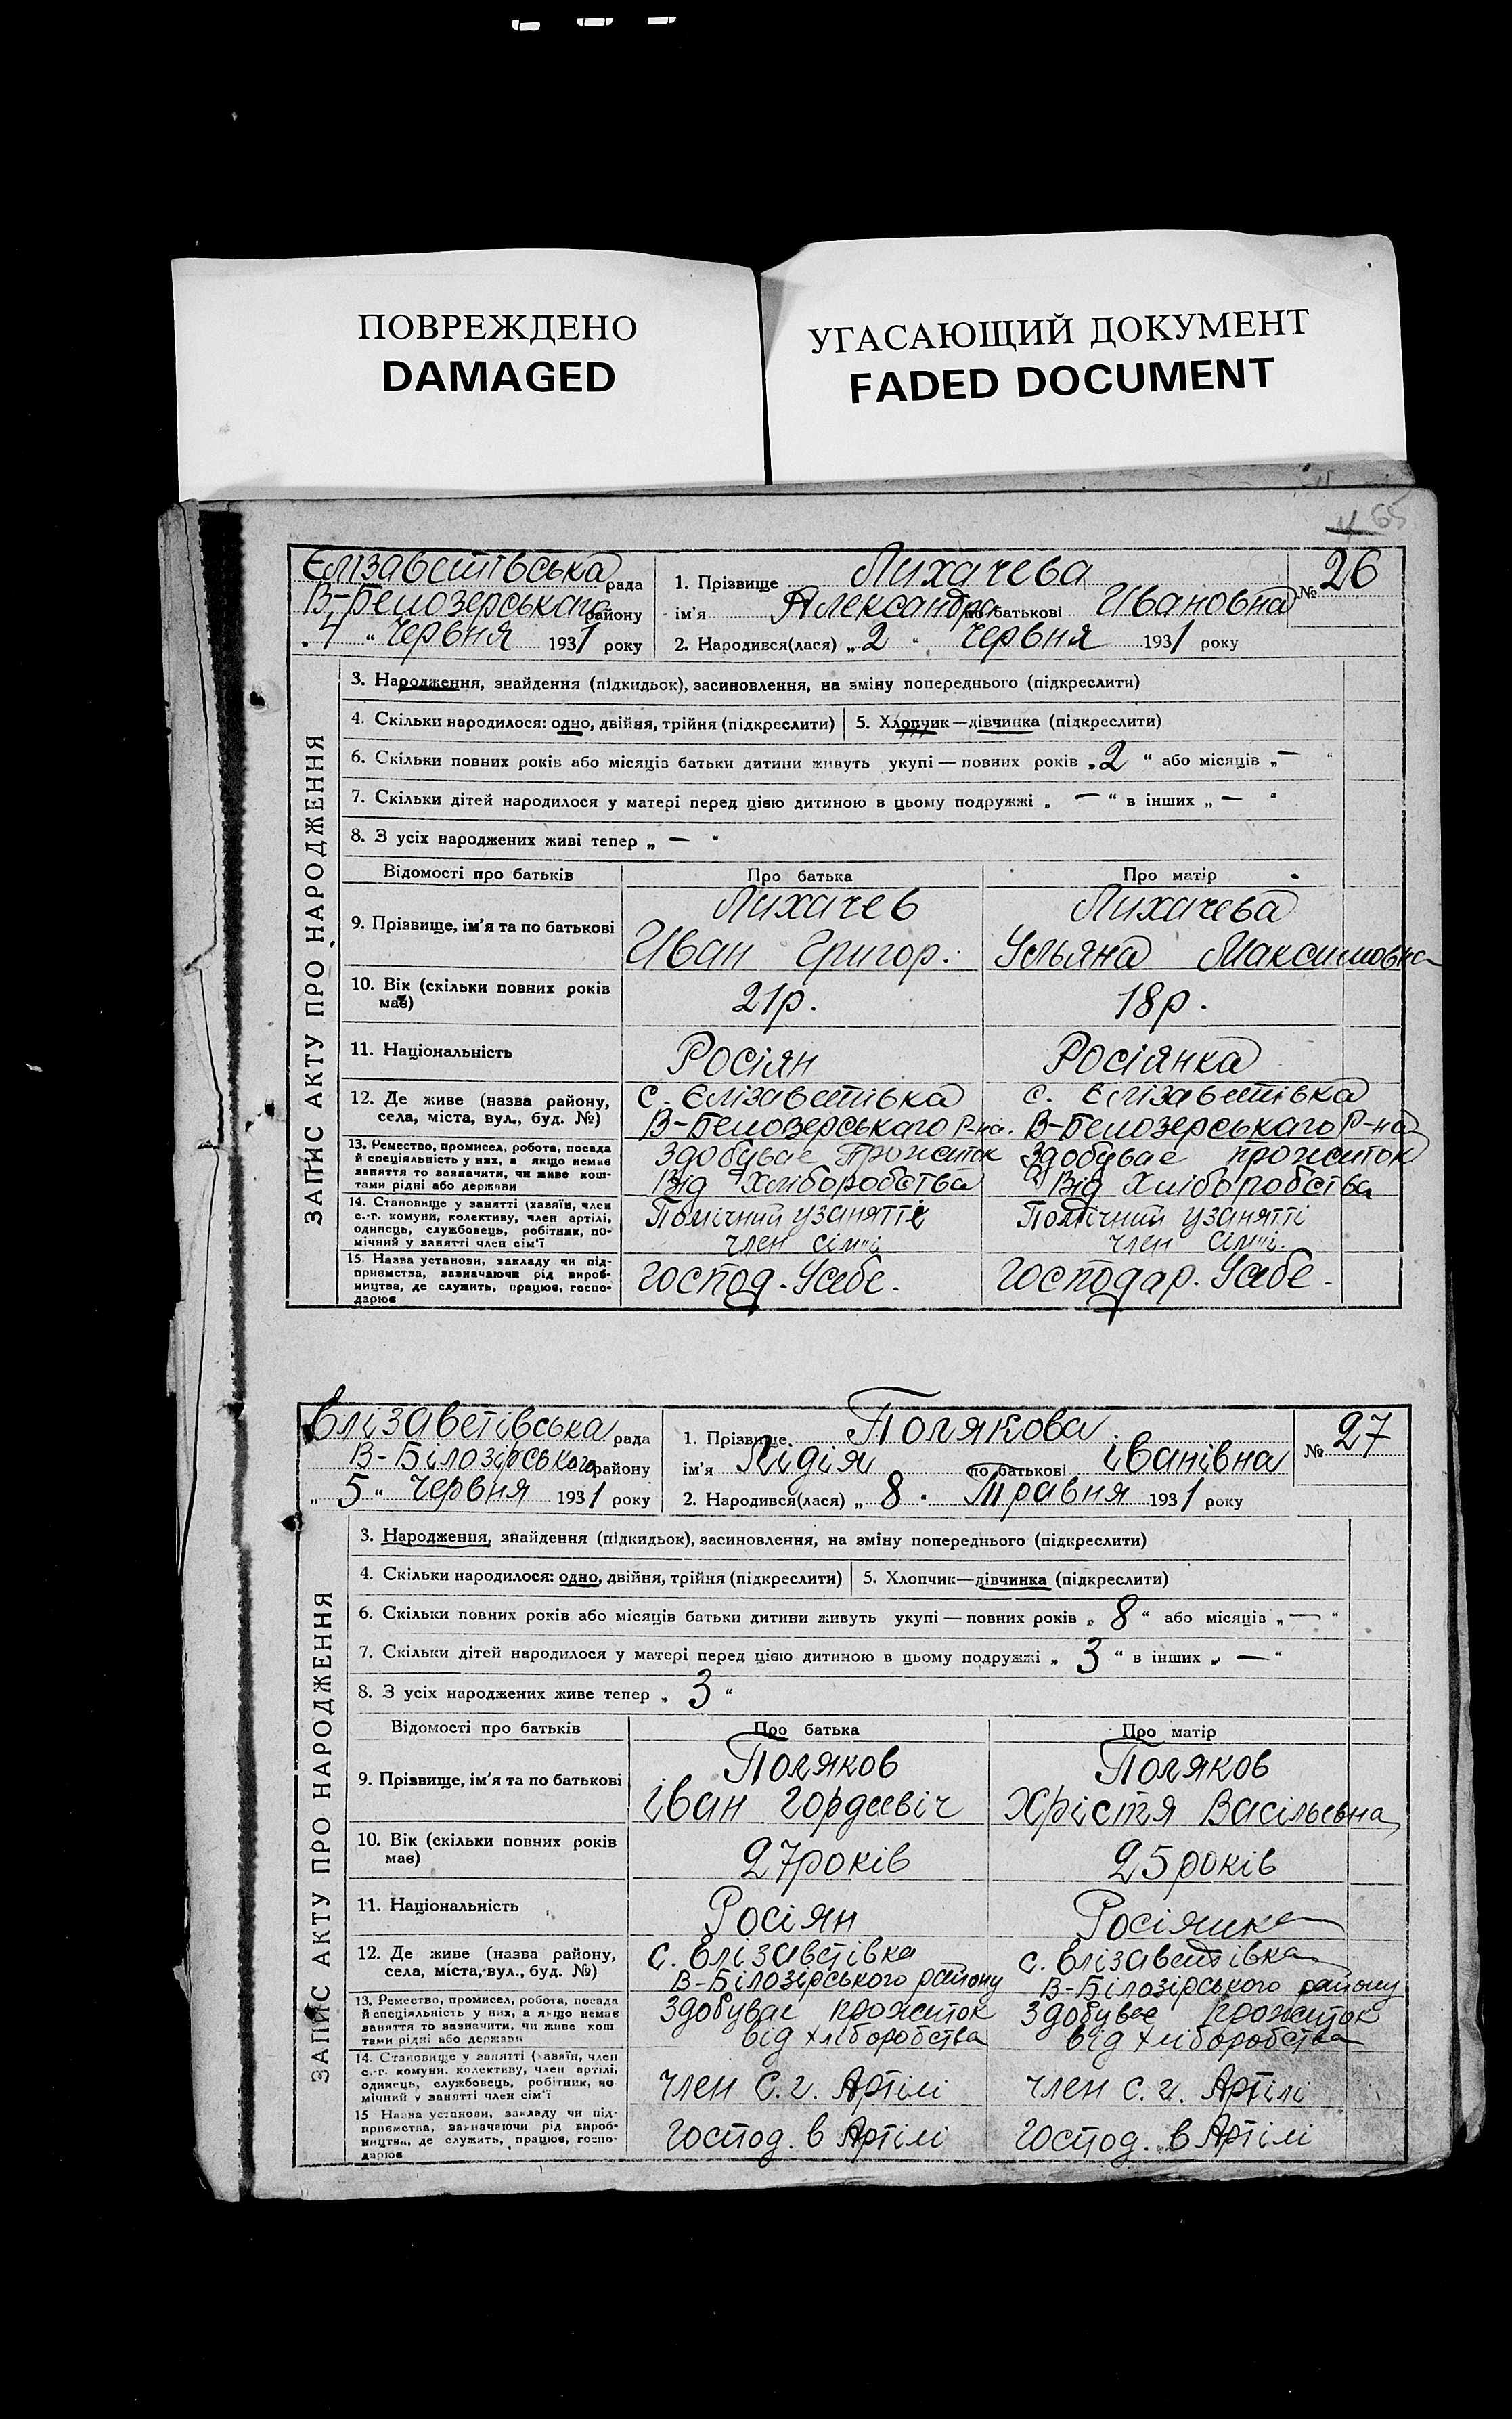 ПОВРЕЖДЕНО
DAMAGED
УГАСАЮЩИЙ ДОКУМЕНТ
FADED DOCUMENT
65
Єлізаветівська рада
В-Белозерськаго району
„4“ Червня 1931 року
1. Прізвище Лихачева
ім'я Александра по батькові Ивановна
№ 26
2. Народився(лася) „2“ Червня 1931 року
ЗАПИС АКТУ ПРО НАРОДЖЕННЯ
3. Народження, знайдення (підкидьок), засиновлення, на зміну попереднього (підкреслити)
4. Скільки народилося: одно, двійня, трійня (підкреслити) 5. Хлопчик—дівчинка (підкреслити)
6. Скільки повних років або місяців батьки дитини живуть укупі — повних років „2“ або місяців „—“
7. Скільки дітей народилося у матері перед цією дитиною в цьому подружжі „—“ в інших „—“
8. З усіх народжених живі тепер „—“
Відомості про батьків Про батька Про матір
9. Прізвище, ім'я та по батькові
Лихачев
Иван Григор.
Лихачева
Ульяна Максимовна
10. Вік (скільки повних років має)
21р.
18р.
11. Національність
Росіян
Росіянка
12. Де живе (назва району, села, міста, вул., буд. №)
с. Єлізаветівка
В-Белозерськаго Р-на.
с. Єлізаветівка
В-Белозерськаго Р-на
13. Ремество, промисел, робота, посада
й спеціяльність у них, а якщо немає
заняття то зазначити, чи живе кош-
тами рідні або держави
Здобувае Прожиток
Від Хліборобства
Здобувае прожиток
Від Хліборобства
14. Становище у занятті (хазяїн, член
с.-г. комуни, колективу, член артілі,
одинець, службовець, робітник, по-
мічний у занятті член сім'ї
Помічний узанятті
член сімї
Помічний узанятті
член сімї.
15. Назва установи, закладу чи під-
приємства, зазначаючи рід вироб-
ництва, де служить, працює, госпо-
дарює
Господ. Усебе.
Господар. Усебе.
Елізаветівська рада
В-Білозірського району
„5“ Червня 1931 року
1. Прізвище Полякова
ім'я Лидія по батькові іванівна
№ 27
2. Народився(лася) „8. Травня 1931 року
ЗАПИС АКТУ ПРО НАРОДЖЕННЯ
3. Народження, знайдення (підкидьок), засиновлення, на зміну попереднього (підкреслити)
4. Скільки народилося: одно, двійня, трійня (підкреслити) 5. Хлопчик—дівчинка (підкреслити)
6. Скільки повних років або місяців батьки дитини живуть укупі — повних років „8“ або місяців „—“
7. Скільки дітей народилося у матері перед цією дитиною в цьому подружжі „3“ в інших „—“
8. З усіх народжених живе тепер „3“
Відомості про батьків Про батька Про матір
9. Прізвище, ім'я та по батькові
Поляков
іван Гордеевіч
Поляков
Хрістя Васільевна
10. Вік (скільки повних років має)
27років
25років
11. Національність
Росіян
Росіянка
12. Де живе (назва району, села, міста, вул., буд. №)
с. Елізаветівка
В-Білозірського району
с. Елізаветівка
В-Білозірського району
13. Ремество, промисел, робота, посада
й спеціяльність у них, а якщо немає
заняття то зазначити, чи живе кош
тами рідні або держави
Здобувае прожиток
від хліборобства
Здобувае прожиток
від хліборобства
14. Становище у занятті (хазяїн, член
с.-г. комуни, колективу, член артілі,
одинець, службовець, робітник, по
мічний у занятті член сім'ї
член с.г. Артілі
член с.г. Артілі
15 Назва установи, закладу чи під-
приємства, зазначаючи рід вироб-
ництва, де служить, працює, госпо-
дарює
Господ. в Артілі
Господ. в Артілі